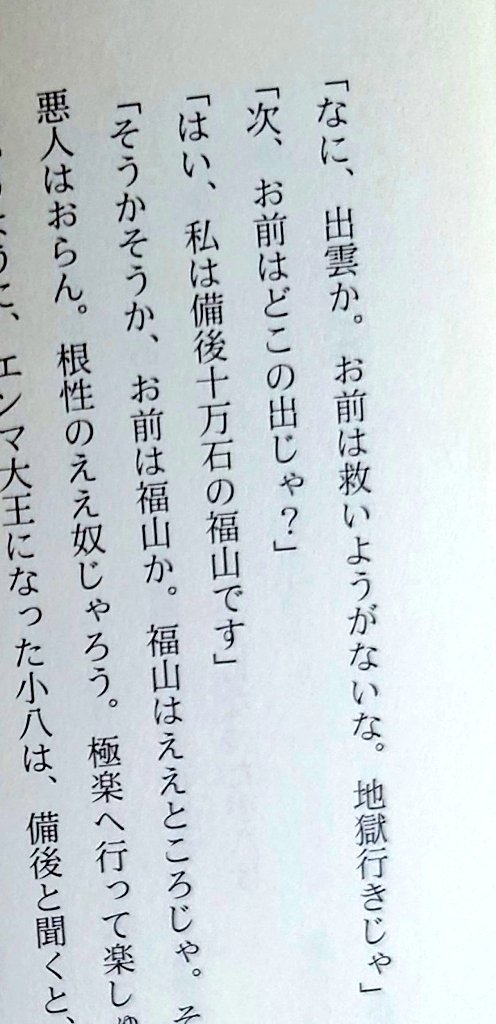 「なに、出雲か。お前は救いようがないな。地獄行きじゃ」
「次、お前はどこの出じゃ？」
「はい、私は備後十万石の福山です」
「そうかそうか、お前は福山か。福山はええところじゃ。そ
悪人はおらん。根性のええ奴じゃろう。極楽へ行って楽しゅ
ように、エンマ大王になった小八は、備後と聞くと、